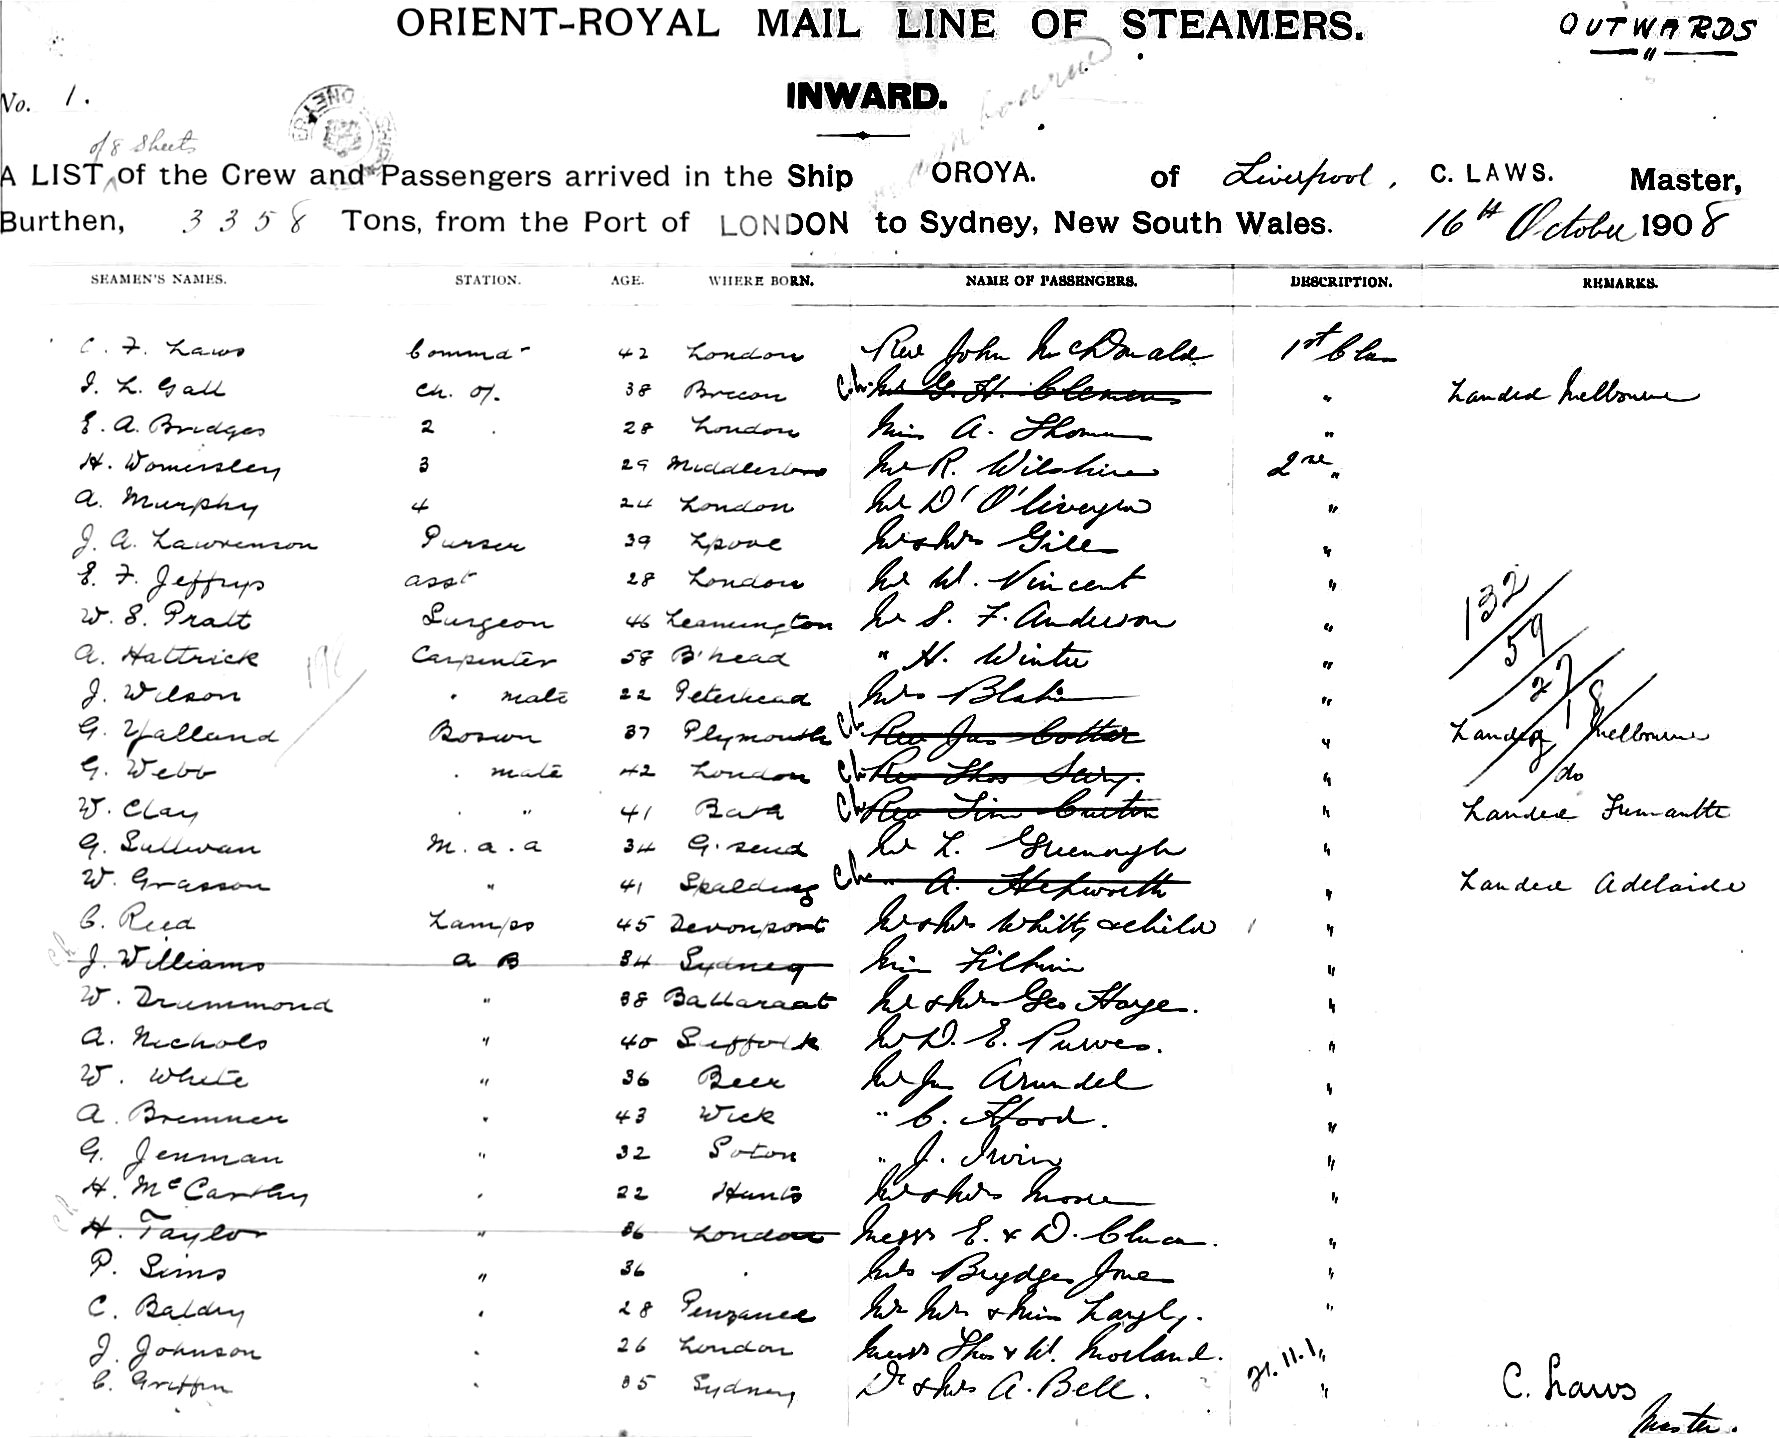 ORIENT-ROYAL MAIL LINE OF STEAMERS. OUTWARDS
INWARD.
No. 1.
of 8 Sheets
A LIST of the Crew and Passengers arrived in the Ship OROYA. of Liverpool, C. LAWS. Master,
Burthen, 3358 Tons, from the Port of LONDON to Sydney, New South Wales. 16th October 1908
SEAMEN'S NAMES. STATION. AGE. WHERE BORN. NAME OF PASSENGERS. DESCRIPTION. REMARKS.
C. F. Laws Commdr 42 London Rev John McDonald 1st Class
J. L. Gall Ch. Of. 38 Brecon Mr G. H. Clemens " Landed Melbourne
E. A. Bridges 2 28 London Miss A. Thomas "
H. Womersley 3 29 Middlesboro Mr R. Wilshire 2nd "
A. Murphy 4 24 London Mr D' "
J. A. Lawrenson Purser 39 Lpool Mr & Mrs Giles "
E. F. Jeffrys asst 28 London Mr W. Vincent "
W. E. Pratt Surgeon 46 Leamington Mr S. F. Anderson "
A. Hattrick Carpenter 58 B'head " H. Winter "
J. Wilson " mate 22 Peterhead Mrs "
G. Yalland Bosun 37 Plymouth Rev Jas Cotter " Landed Melbourne
G. Webb " mate 42 London Rev Thos " do
W. Clay " " 41 Bath Rev " Landed Fremantle
G. Sullivan M.a.a 34 G.send Mr L. Greenough "
W. Grasson " 41 Spalding " A. Hepworth " Landed Adelaide
C. Reed Lamps 45 Devonport Mr & Mrs Whitty & child "
J. Williams AB 34 Sydney Miss "
W. Drummond " 38 Ballaraat Mr & Mrs Geo "
A. Nichols " 40 Suffolk Mr D. E. Purves. "
W. White " 36 Beer Mr Jas Arundel "
A. Bremner " 43 Wick " C. Hood. "
G. Jenman " 32 Soton " J. Irvin "
H. McCarthy " 22 Hunts Mr & Mrs Moore "
H. Taylor " 36 London Messrs E. & D. "
P. Sims " 36 " Mrs Brydges Jones "
C. Baldry " 28 Penzance Mr Mrs & Miss "
J. Johnson " 26 London Messrs Thos & W. Morland. "
C. Griffin " 35 Sydney Dr & Mrs A. Bell. "
132
59
27
18
C. Laws
Master.